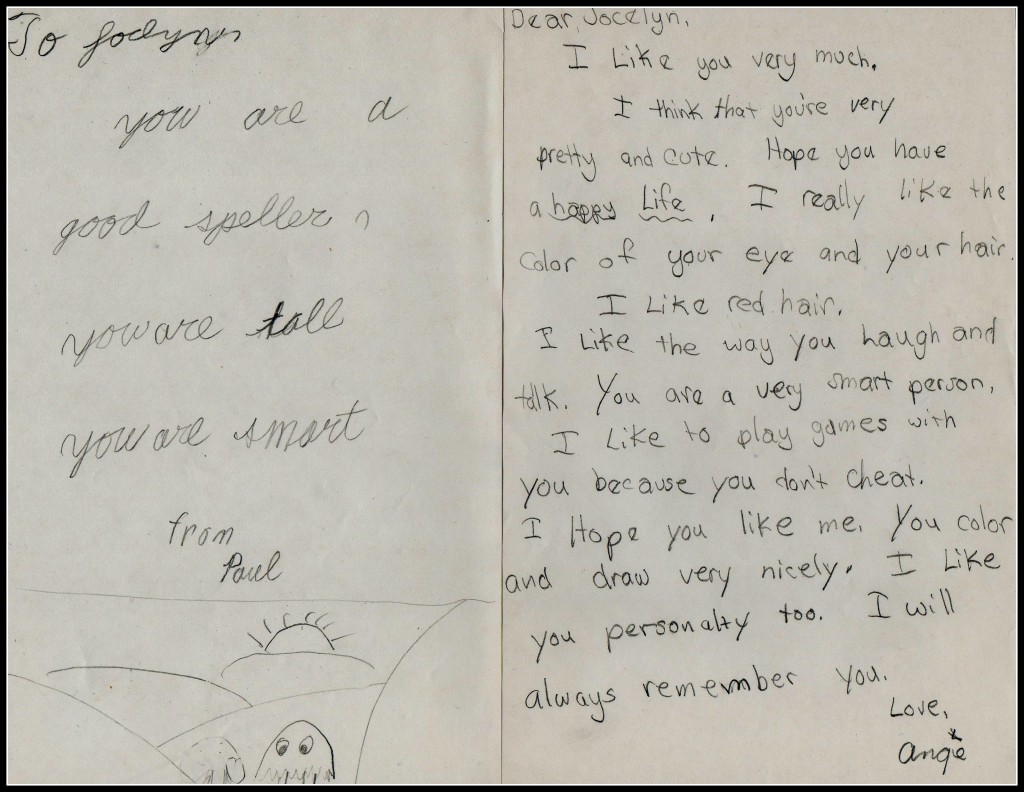 To Joclynn
you are a
good speller,
you are tall
you are smart
from
Paul
Dear Jocelyn,
I Like you very much.
I think that you're very
pretty and cute. Hope you have
a happy Life. I really like the
color of your eye and your hair.
I Like red hair.
I Like the way you haugh and
talk. You are a very smart person,
I Like to play games with
you because you don't cheat.
I Hope you like me. You color
and draw very nicely. I Like
you personalty too. I will
always remember you.
Love,
Angie